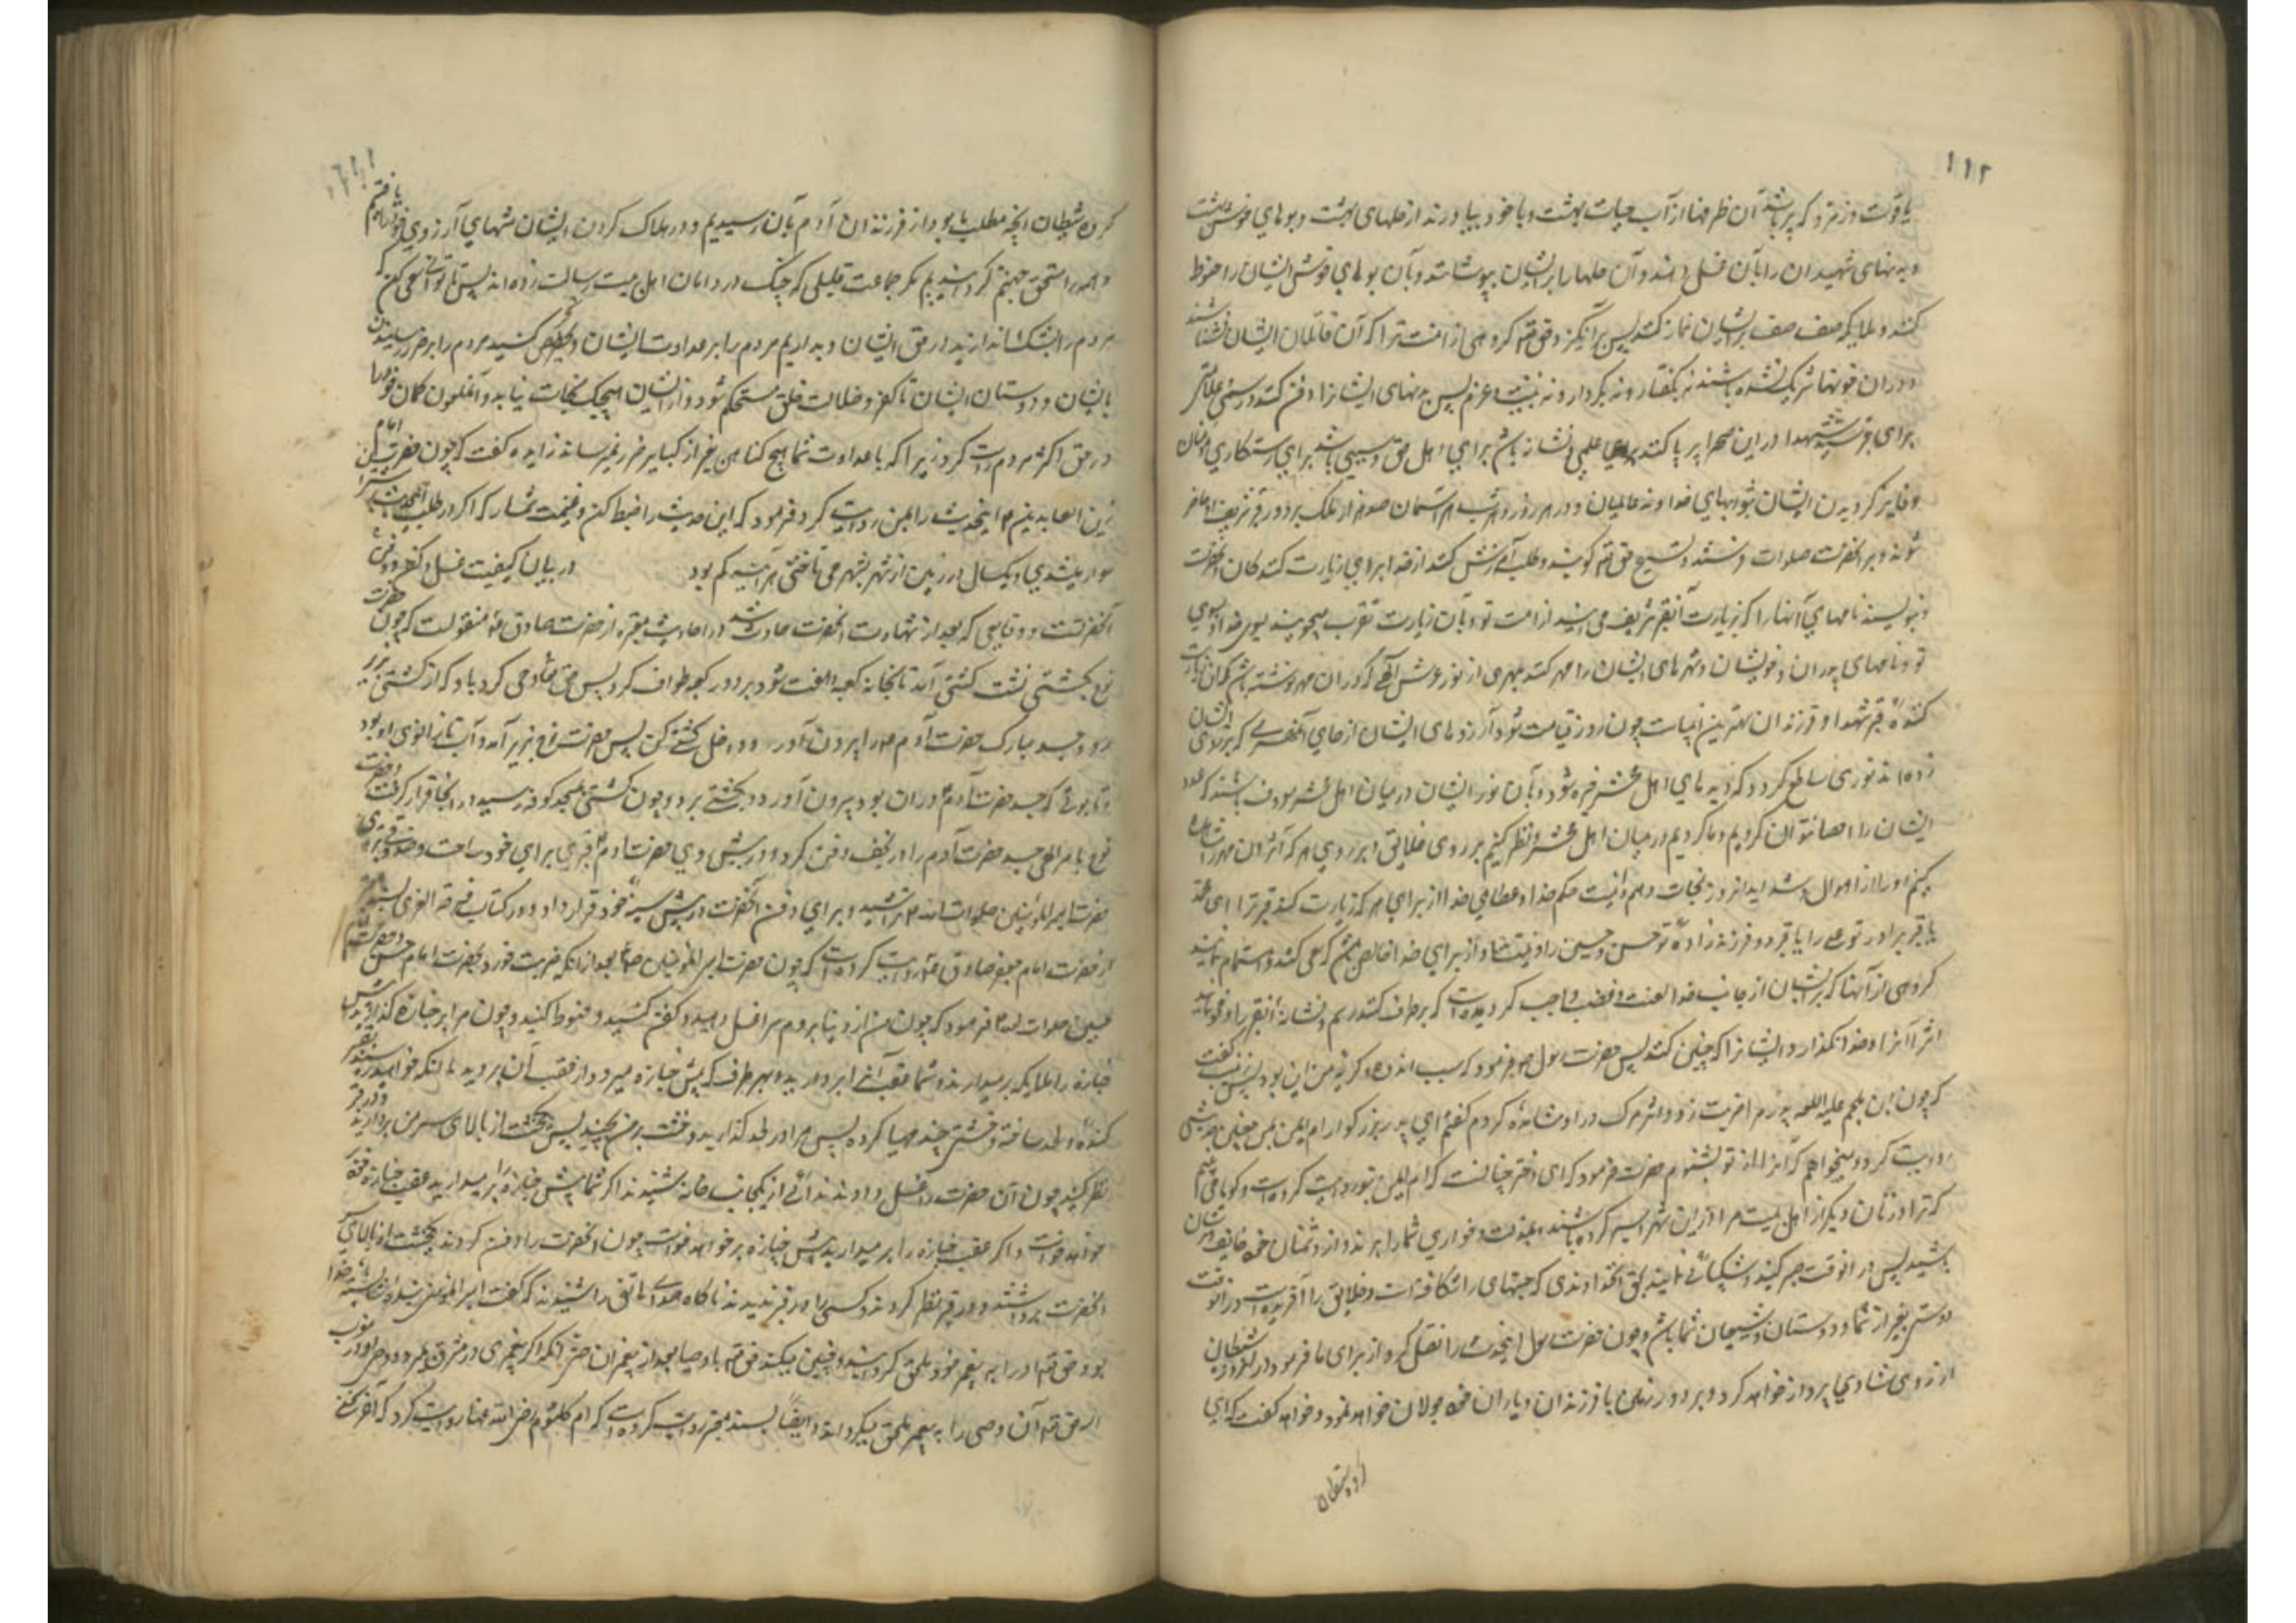 ۱۱۲
یاقوت و زمرد که پر باشد آن ظرفها از آب حیات بهشت و با خود بیاورند از حلهای بهشت و بوهای خوش بهشت
و بدنهای شهیدان را بآن غسل دهند و آن حلها را بر ایشان بپوشانند و بآن بوهای خوش ایشان را حنوط
کنند و ملایکه صف صف بر ایشان نماز کنند پس برانگیزد حق تعه کروهی از امت ترا که آن قاتلان ایشان نشناسند
و در آن خونها شریک نشده باشند نه بگفتار و نه بکردار و نه بنیت و عزم پس بدنهای ایشانرا دفن کنند و رسمی و علامتی
برای قبر سید شهدا در این صحرا بر پا کنند که علمی و نشانه باشد برای اهل حق و سببی باشد برای رستکاری مؤمنان
و فایز کردیدن ایشان بثوابهای خداوند عالمیان و در هر روز و هر شب از هر آسمان صد هزار ملک بر دور قبر شریف او حاضر
شوند و بر آنحضرت صلوات فرستند و تسبیح حق تعه کویند و طلب آمرزش کنند از خدا برای زیارت کنندکان آنحضرت
و بنویسند نامهای آنها را که بزیارت آنقبر شریف می آیند از امت تو و بآن زیارت تقرب میجویند بسوی خدا و بسوی
تو و نامهای پدران و خویشان و شهرهای ایشان را و مهر کنند بمهری از نور عرش الهی که در آن مهر نوشته باشد که این زیارت
کننده قبر شهدا و فرزند آن بهترین انبیاست چون روز قیامت شود از روهای ایشان از جای آن مهر که بر روی ایشان
زده اند نوری ساطع کردد که دیده های اهل محشر خیره شود و بآن نور ایشان در میان اهل محشر معروف باشند که عدد
ایشان را احصا نتوان کرد و ما کردیم در میان اهل محشر و نظر کنیم بر روی خلایق و بر روی هر که اثر آن مهر را مشاهده
کنیم او را از اهوال و شداید آنروز نجات دهیم و اینست حکم خدا و عطای خدا از برای هر که زیارت کند قبر ترا ای محمد
یا قبر برادر تو علی را یا قبر دو فرزند زاده تو حسن و حسین را و نیت او از برای خدا خالص باشد و سعی کنند و اهتمام نمایند
کروهی از آنها که بر ایشان از جانب خدا لعنت و غضب واجب کردیده است که برطرف کنند رسم و نشانه آنقبر را و محو نمایند
اثر آنرا و خدا نکذارد ایشانرا که چنین کنند پس حضرت رسول ص فرمود که سبب اندوه و کریه من این بود پس زینب کفت
که چون ابن ملجم علیه اللعنه پدرم را ضربت زد و اثر مرک در او مشاهده کردم کفتم ای پدر بزرکوار ام ایمن بمن چنین حدیثی
روایت کرد و میخواهم که آنرا از تو بشنوم حضرت فرمود که ای دختر چنانست که ام ایمن بتو روایت کرده است و کویا می بینم
که ترا و زنان دیکر از اهل بیت مرا در این شهر اسیر کرده باشند بمذلت و خواری شما را برند و از دشمنان خود خایف و ترسان
باشید پس در آنوقت صبر کنید و شکیبائی نمایید بحق آنخداوندی که حبها را شکافته است و خلایق را آفریده است در آنوقت
دوستی بغیر از شما و دوستان و شیعیان شما باشد و چون حضرت رسول اینحدیث را نقل کرد از برای ما فرمود در آنروز شیطان
از روی شادی پرواز خواهد کرد و بر دور زمین با فرزندان و یاران خود جولان خواهد نمود و خواهد کفت که ای
کروه شیطان آنچه مطلب ما بود از فرزندان آدم بآن رسیدیم و در هلاک کردن ایشان منتهای آرزوی خود را یافتیم
و همه را مستحق جهنم کردانیدیم مکر جماعت قلیلی که چنک در دامان اهل بیت رسالت زده اند پس تا توانید سعی کنید که
مردم را بشک اندازید در حق ایشان و بداریم مردم را بر عداوت ایشان و تحریص کنید مردم را بر ضرر رسانیدن
بایشان و دوستان ایشان تا کفر و ضلالت خلق مستحکم شود و از ایشان هیچیک نجات نیابد و آنملعون کمان خود را
در حق اکثر مردم راست کرد زیرا که با عداوت شما هیچ کناهی بغیر از کبایر ضرر نمیرساند زایده کفت که چون حضرت امام
زین العابدین ع اینحدیث را بمن روایت کرد فرمود که این حدیث را ضبط کن و غنیمت شمار که اکر در طلب اینحدیث
سوار میشدی و یکسال در زمین از شهر بشهر می تاختی هرآینه کم بود در بیان کیفیت غسل و کفن و دفن
آنحضرتست و وقایعی که بعد از شهادت آنحضرت حادث شد در احادیث معتبره از حضرت صادق ع منقولست که چون حضرت
نوح بکشتی نشست کشتی آمد تا بخانه کعبه و هفت شوط بر دور کعبه طواف کرد پس حق تعه وحی کرد باو که از کشتی بزیر
رود و جسد مبارک حضرت آدم ع را بیرون آورد و داخل کشتی کن پس حضرت نوح بزیر آمد و آب تا زانوی او بود
و تابوتی که جسد حضرت آدم ع در آن بود بیرون آورد و بکشتی برد و چون کشتی بمسجد کوفه رسید در آنجا قرار کرفت و حضرت
نوح بامر الهی جسد حضرت آدم را در نجف دفن کرد و در پیش روی حضرت آدم ع قبری برای خود ساخت و صندوقی برای
حضرت امیر المؤمنین صلوات الله علیه تراشید و برای دفن آنحضرت در پیش سینه خود قرار داد و در کتاب فرحة الغری بسند معتبر
از حضرت امام جعفر صادق ع روایت کرده است که چون حضرت امیر المؤمنین ص بعد از آنکه ضربت خورد بحضرت امام حسن و حضرت امام
حسین صلوات الله علیهما فرمود که چون من از دنیا بروم مرا غسل دهید و کفن کنید و حنوط کنید و چون مرا بر جنازه کذارید پیش
جنازه را ملایکه برمیدارند و شما عقب آنرا بردارید و بهر طرف که پیش جنازه میرود از عقب آن بروید تا آنکه خواهید رسید بقبر
کنده و لحد ساخته و خشتی چند مهیا کرده پس مرا در لحد کذارید و خشت بر من بچینید پس یکخشت از بالای سر من بردارید و در قبر
نظر کنید چون آن حضرت را غسل دادند ندائی از یکجانب خانه شنیدند که اکر شما پیش جنازه را برمیدارید عقب جنازه خود
خواهد خواست و اکر عقب جنازه را برمیدارید پیش جنازه برخواهد خواست چون آنحضرت را دفن کردند یکخشت از بالای سر
آنحضرت برداشتند و در قبر نظر کردند و کسی را در قبر ندیدند ناکاه صدای هاتفی را شنیدند که کفت امیر المؤمنین بنده شایسته خدا
بود حق تعه او را به پیغمبر خود ملحق کردانید و چنین میکند حق تعه باوصیا بعد از پیغمبران حتی آنکه اکر پیغمبری در مشرق بمیرد و وصی او در مغرب
البته حق تعه آن وصی را به پیغمبر ملحق میکرداند و ایضا بسند معتبر روایت کرده است که ام کلثوم رضی الله عنها روایت کرد که آخر سخنی